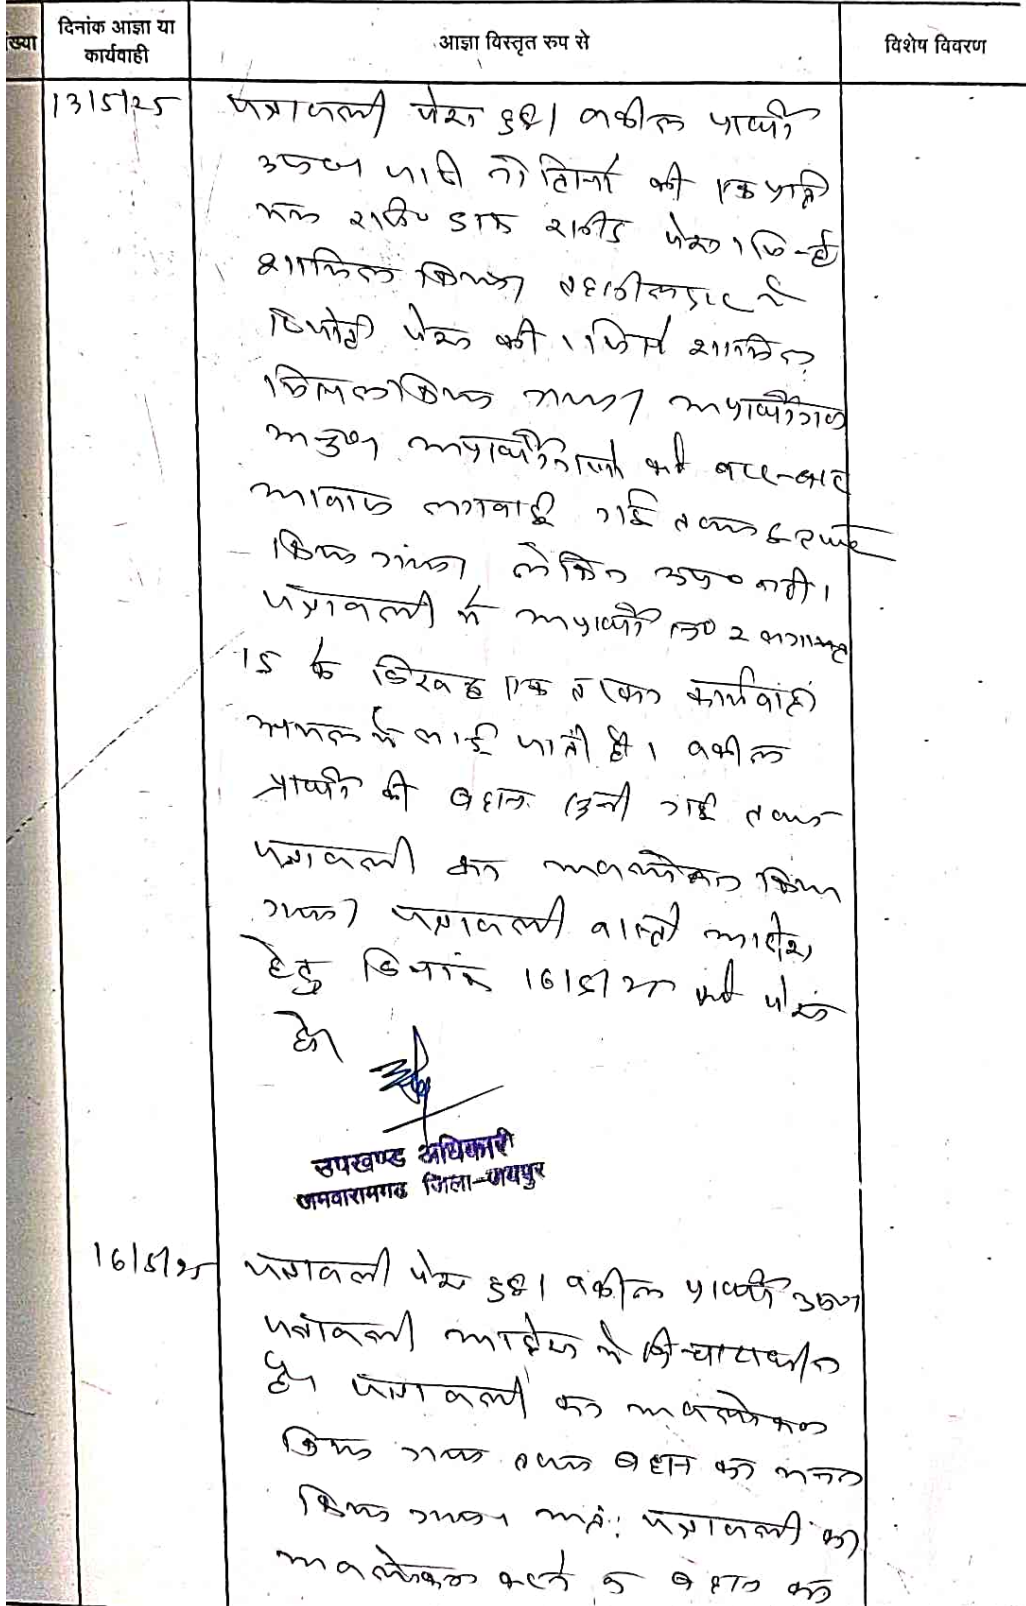 ख्या
दिनांक आज्ञा या
कार्यवाही
आज्ञा विस्तृत रुप से
विशेष विवरण
13/5/25
पत्रावली पेश हुई। वकील प्रार्थी
उप० जारी नोटिसों की एक प्रति
मय रजि० डाक रसीद पेश। जिन्हें
शामिल किया तहसीलदार ने
रिपोर्ट पेश की। जिसे शामिल
मिसल किया गया। अप्रार्थीगण
अप्रार्थीगणों को बार-बार
आवाज लगवाई गई तथा
किया गया, लेकिन उप० नहीं।
पत्रावली में अप्रार्थी सं० 2 लगायत
15 के विरुद्ध एक तरफा कार्यवाही
अमल में लाई जाती है। वकील
प्रार्थी की बहस सुनी गई तथा
पत्रावली का अवलोकन किया
गया। पत्रावली वास्ते आदेश
हेतु दिनांक 16/5/25 को पेश
हो।
उपखण्ड अधिकारी
जमवारामगढ जिला-जयपुर
16/5/25
पत्रावली पेश हुई। वकील प्रार्थी उप०
पत्रावली आदेश में विचाराधीन
है। पत्रावली का अवलोकन
किया गया तथा बहस का मनन
किया गया। अतः पत्रावली का
अवलोकन करने व बहस का